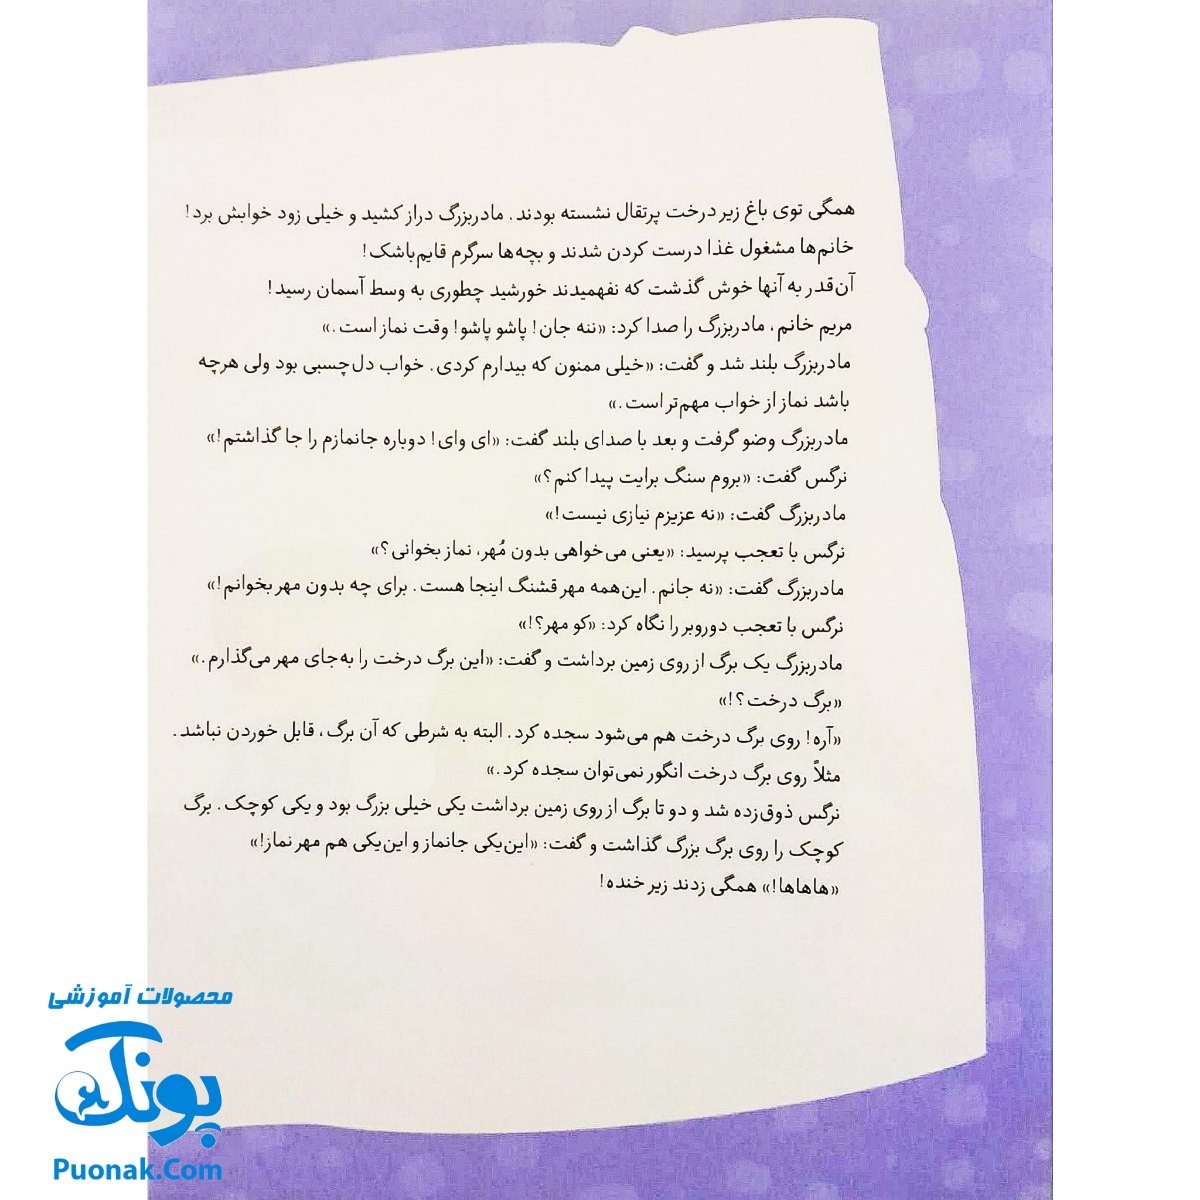 همگی توی باغ زیر درخت پرتقال نشسته بودند. مادربزرگ دراز کشید و خیلی زود خوابش برد!
خانم‌ها مشغول غذا درست کردن شدند و بچه‌ها سرگرم قایم‌باشک!
آن‌قدر به آنها خوش گذشت که نفهمیدند خورشید چطوری به وسط آسمان رسید!
مریم خانم، مادربزرگ را صدا کرد: «ننه جان! پاشو پاشو! وقت نماز است.»
مادربزرگ بلند شد و گفت: «خیلی ممنون که بیدارم کردی. خواب دل‌چسبی بود ولی هرچه
باشد نماز از خواب مهم‌تر است.»
مادربزرگ وضو گرفت و بعد با صدای بلند گفت: «ای وای! دوباره جانمازم را جا گذاشتم!»
نرگس گفت: «بروم سنگ برایت پیدا کنم؟»
مادربزرگ گفت: «نه عزیزم نیازی نیست!»
نرگس با تعجب پرسید: «یعنی می‌خواهی بدون مُهر، نماز بخوانی؟»
مادربزرگ گفت: «نه جانم. این‌همه مهر قشنگ اینجا هست. برای چه بدون مهر بخوانم!»
نرگس با تعجب دوروبر را نگاه کرد: «کو مهر؟!»
مادربزرگ یک برگ از روی زمین برداشت و گفت: «این برگ درخت را به‌جای مهر می‌گذارم.»
«برگ درخت؟!»
«آره! روی برگ درخت هم می‌شود سجده کرد. البته به شرطی که آن برگ، قابل خوردن نباشد.
مثلاً روی برگ درخت انگور نمی‌توان سجده کرد.»
نرگس ذوق‌زده شد و دو تا برگ از روی زمین برداشت یکی خیلی بزرگ بود و یکی کوچک. برگ
کوچک را روی برگ بزرگ گذاشت و گفت: «این‌یکی جانماز و این‌یکی هم مهر نماز!»
«هاهاها!» همگی زدند زیر خنده!
محصولات آموزشی
پونک
Puonak.Com